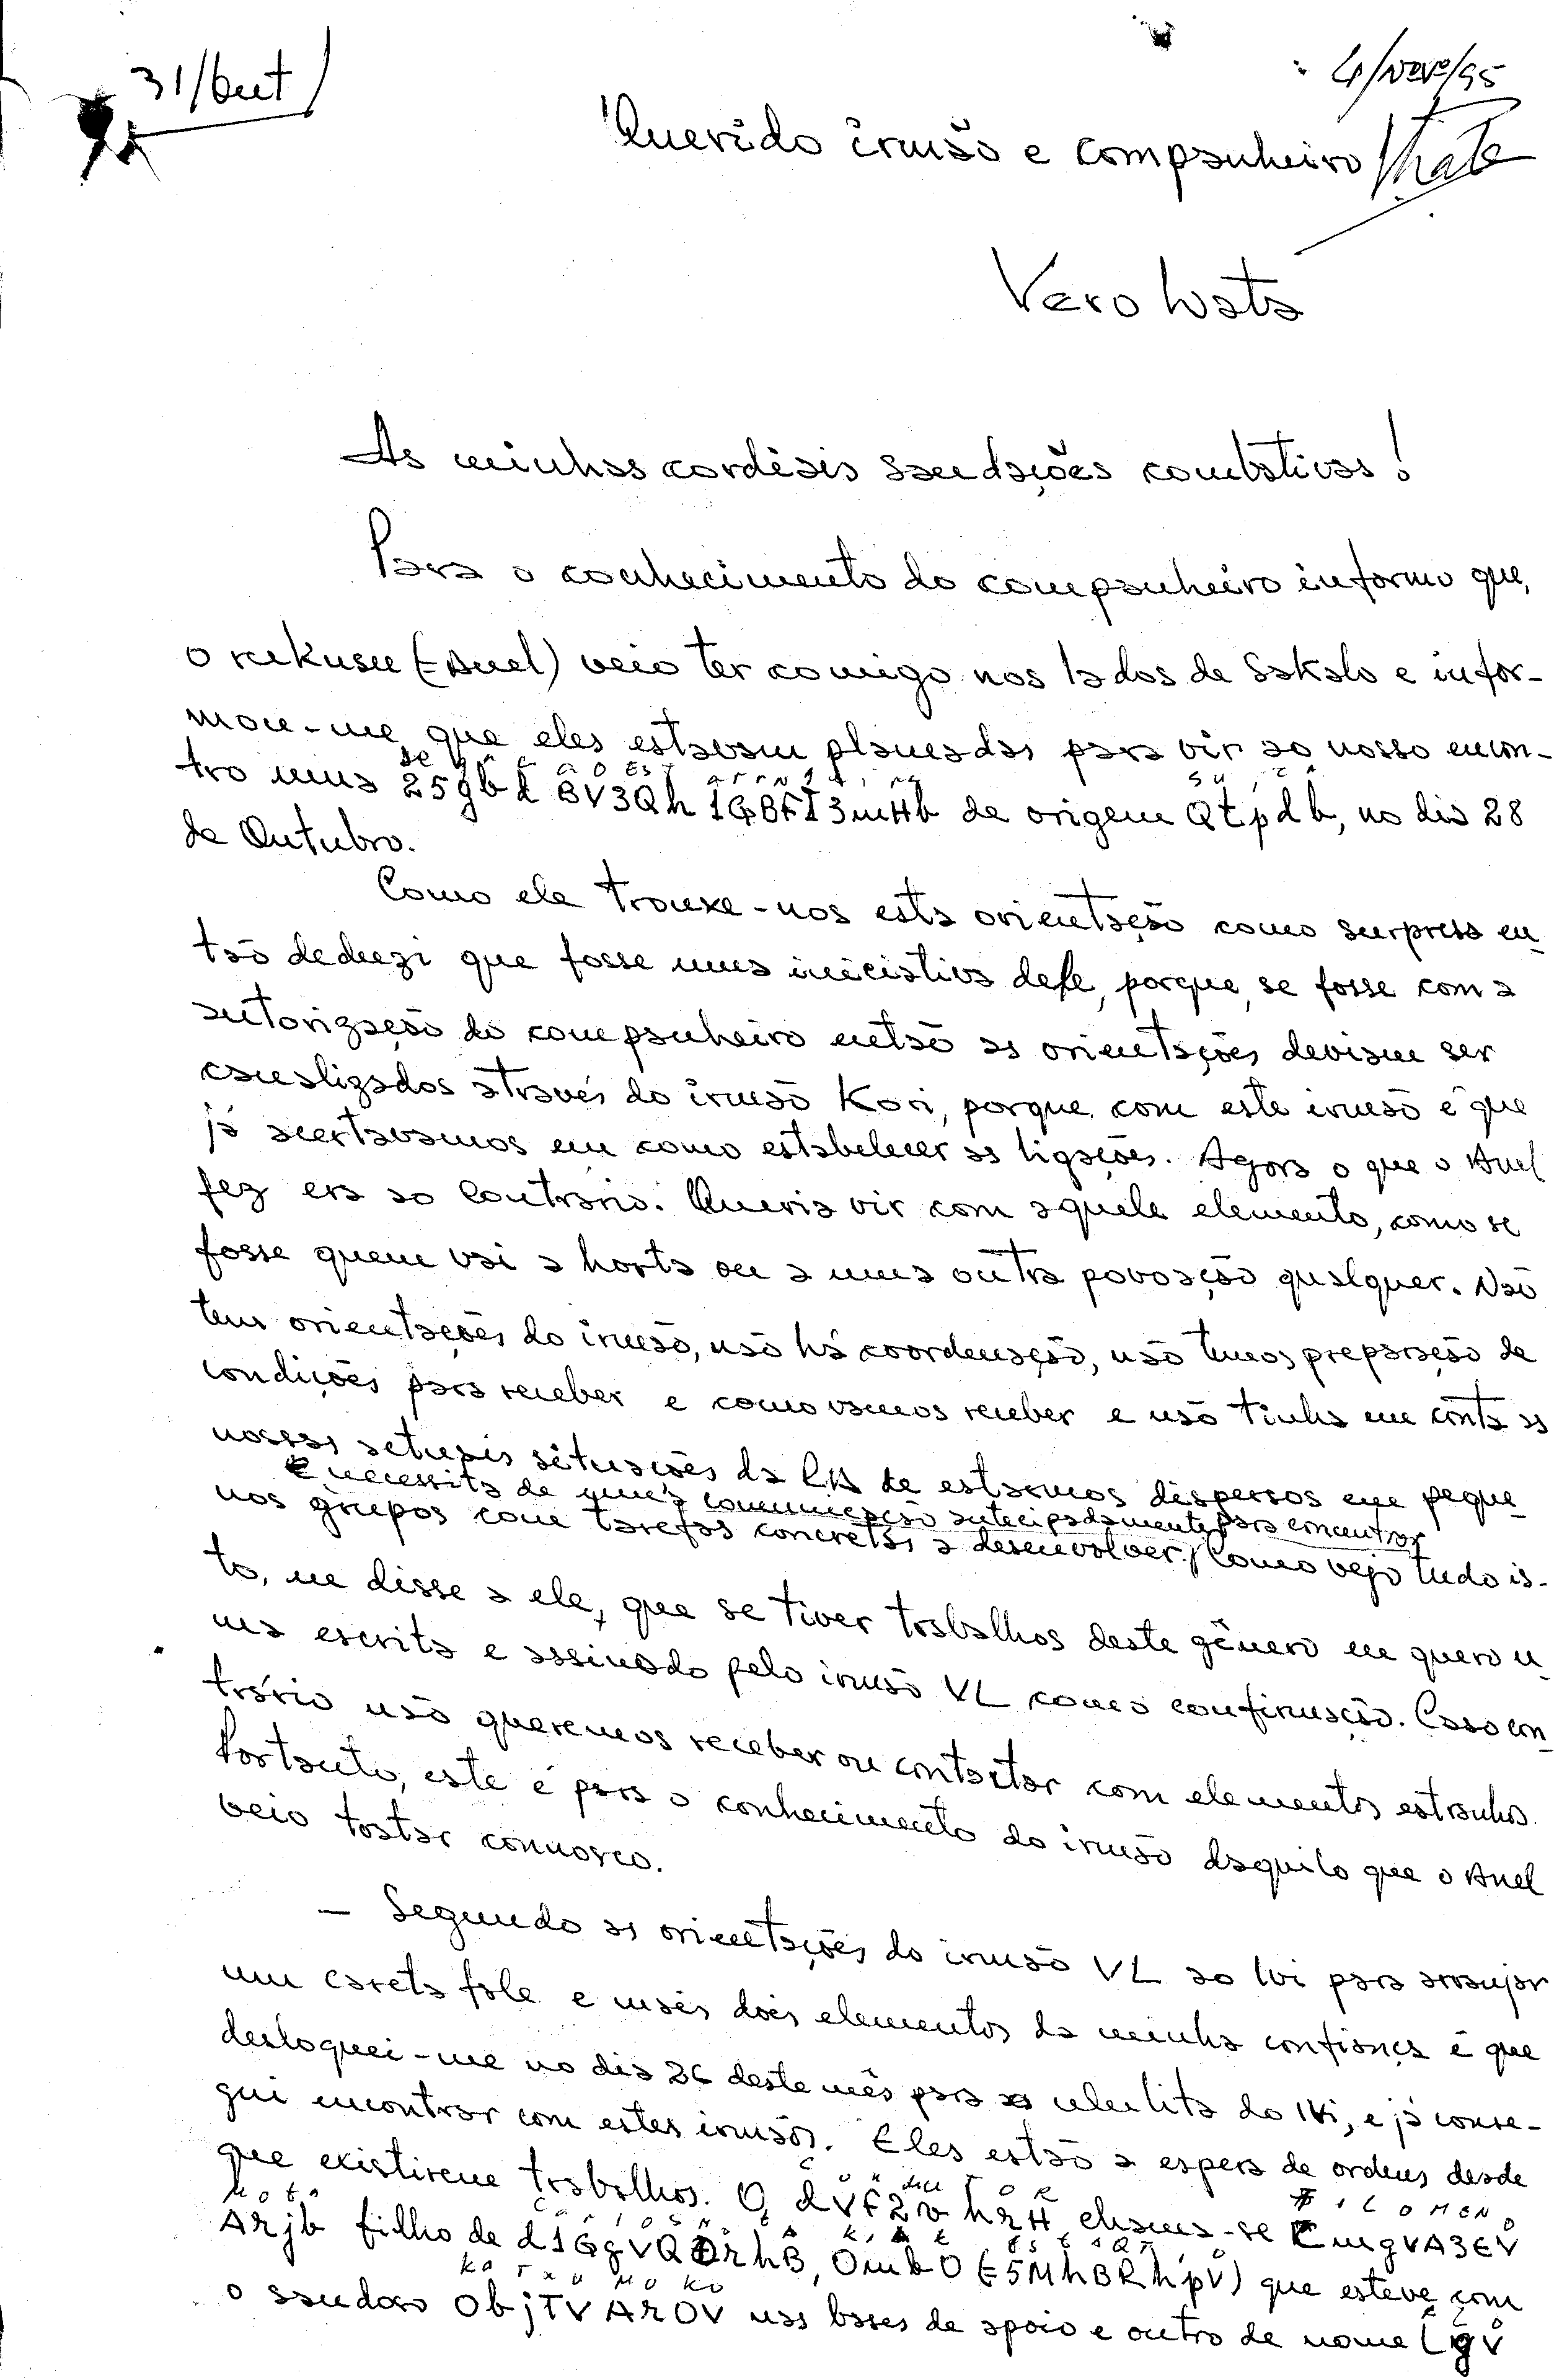 31/Out
4/Nov/95
Querido irmão e companheiro
Vero Wata
As minhas cordiais saudações combativas!
Para o conhecimento do companheiro informo que,
o kukusu (Anel) veio ter comigo nos lados de Sakalo e infor-
mou-me que eles estavam planeados para vir ao nosso encon-
tro uma de origem no dia 28
de Outubro.
Como ele trouxe-nos esta orientação como surpresa en-
tão deduzi que fosse uma iniciativa dele, porque, se fosse com a
autorização do companheiro então as orientações deviam ser
canalizados através do irmão Kori, porque com este irmão é que
já acertavamos em como estabelecer as ligações. Agora o que o Anel
fez era ao contrário. Queria vir com aquele elemento, como se
fosse quem vai a horta ou a uma outra povoação qualquer. Não
tem orientações do irmão, não há coordenação, não temos preparação de
condições para receber e como vamos receber e não tinha em conta as
nossas actuais situações da de estarmos dispersos em peque-
e necessita de uma comunicação antecipadamente para concentrar
nos grupos com tarefas concretas a desenvolver. Como vejo tudo is-
to, me disse a ele, que se tiver trabalhos deste gênero eu quero u-
ma escrita e assinado pelo irmão VL como confirmação. Caso con-
trário não queremos receber ou contactar com elementos estranhos.
Portanto, este é para o conhecimento do irmão daquilo que o Anel
veio tratar connosco.
— Segundo as orientações do irmão VL ao para arranjar
um careta fole e mais dois elementos da minha confiança é que
desloquei-me no dia 26 deste mês para do e já conse-
gui encontrar com estes irmãos. Eles estão a espera de ordens desde
que existirem trabalhos. O chama-se
filho de que esteve com
o saudoso nas bases de apoio e outro de nome